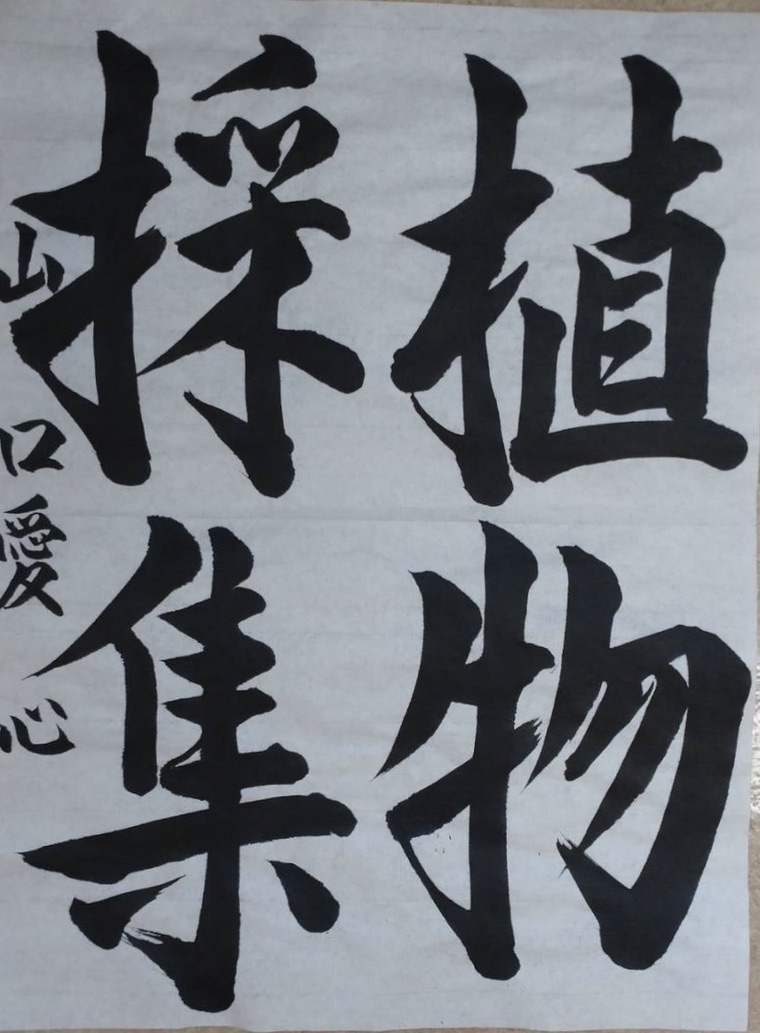 植物
採集
山口愛心